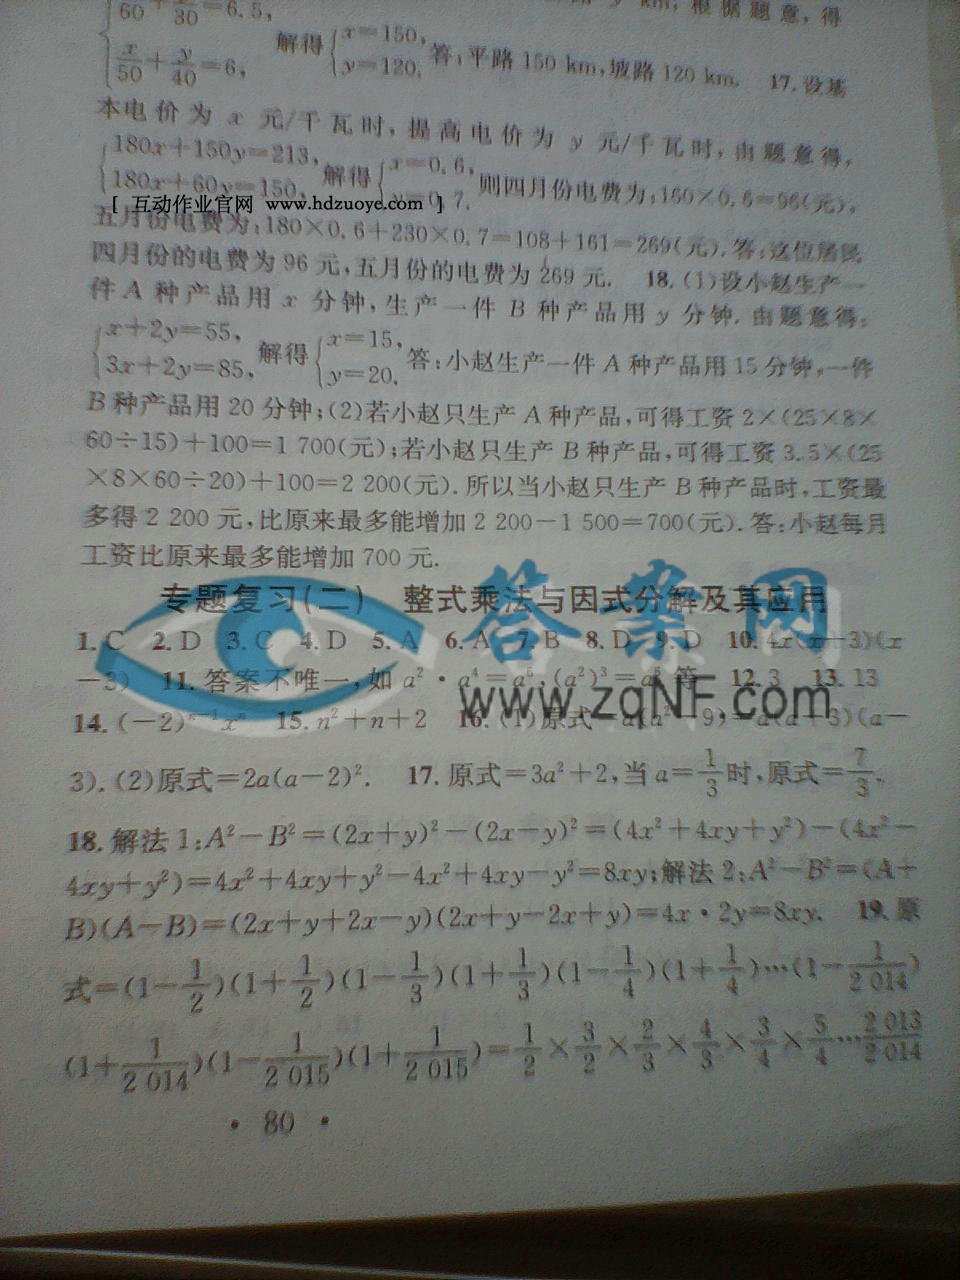 60 + 30 =6.5,
x/50+y/40=6, 解得{x=150, y=120. 答:平路150 km,坡路120 km. 17.设基
km,根据题意,得
本电价为 x 元/千瓦时,提高电价为 y 元/千瓦时,由题意得,
{180x+150y=213, 180x+60y=150, 解得{x=0.6, y=0.7. 则四月份电费为:160×0.6=96(元),
[ 互动作业官网 www.hdzuoye.com ]
五月份电费为:180×0.6+230×0.7=108+161=269(元).答:这位居民
四月份的电费为96元,五月份的电费为269元. 18.(1)设小赵生产一
件A种产品用 x 分钟,生产一件 B 种产品用 y 分钟.由题意得:
{x+2y=55, 3x+2y=85, 解得{x=15, y=20. 答:小赵生产一件A种产品用15分钟,一件
B种产品用20分钟;(2)若小赵只生产A种产品,可得工资2×(25×8×
60÷15)+100=1 700(元);若小赵只生产B种产品,可得工资3.5×(25
×8×60÷20)+100=2 200(元).所以当小赵只生产B种产品时,工资最
多得2 200元,比原来最多能增加2 200-1 500=700(元).答:小赵每月
工资比原来最多能增加700元.
专题复习(二) 整式乘法与因式分解及其应用
答案网
1.C 2.D 3.C 4.D 5.A 6.A 7.B 8.D 9.D 10.4x(x-3)(x
-3) 11.答案不唯一,如a²·a⁴=a⁶,(a²)³=a⁶等 12.3 13.13
www.zqNF.com
14.(-2)ⁿ⁻¹xⁿ 15.n²+n+2 16.(1)原式=a(a²-9)=a(a+3)(a-
3).(2)原式=2a(a-2)². 17.原式=3a²+2,当a=1/3时,原式=7/3.
18.解法1:A²-B²=(2x+y)²-(2x-y)²=(4x²+4xy+y²)-(4x²-
4xy+y²)=4x²+4xy+y²-4x²+4xy-y²=8xy;解法2:A²-B²=(A+
B)(A-B)=(2x+y+2x-y)(2x+y-2x+y)=4x·2y=8xy. 19.原
式=(1-1/2)(1+1/2)(1-1/3)(1+1/3)(1-1/4)(1+1/4)…(1-1/2 014)
(1+1/2 014)(1-1/2 015)(1+1/2 015)=1/2×3/2×2/3×4/3×3/4×5/4…2 013/2 014
· 80 ·